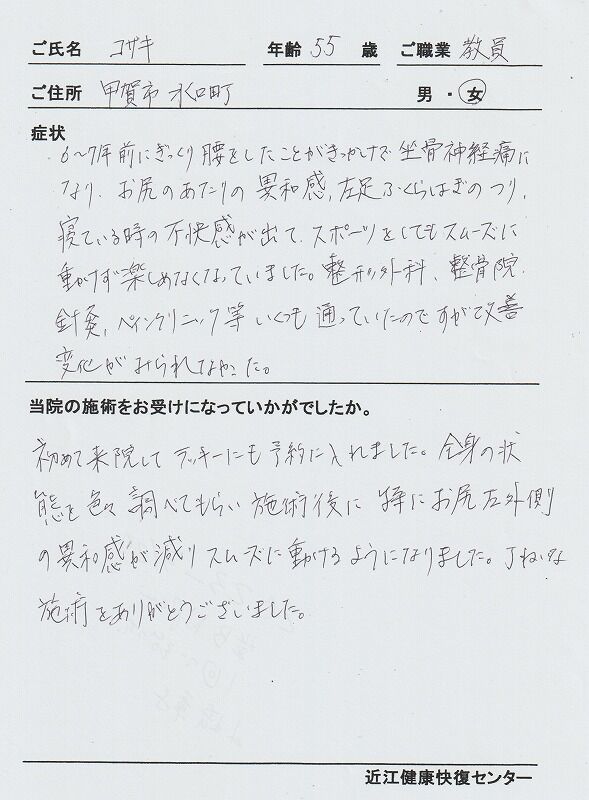 ご氏名 コザキ 年齢 55 歳 ご職業 教員
ご住所 甲賀市 水口町 男・女
症状
6〜7年前にぎっくり腰をしたことがきっかけで 坐骨神経痛に
なり、お尻のあたりの異和感、左足ふくらはぎのつり、
寝ている時の不快感が出て、スポーツをしてもスムーズに
動けず楽しめなくなっていました。整形外科、整骨院、
針灸、ペインクリニック等 いくつも通っていたのですがで改善
変化がみられなかった。
当院の施術をお受けになっていかがでしたか。
初めて来院して ラッキーにも予約に入れました。全身の状
態を色々調べてもらい 施術後に 特にお尻左外側
の異和感が減りスムーズに動けるようになりました。丁ねいな
施術をありがとうございました。
近江健康快復センター